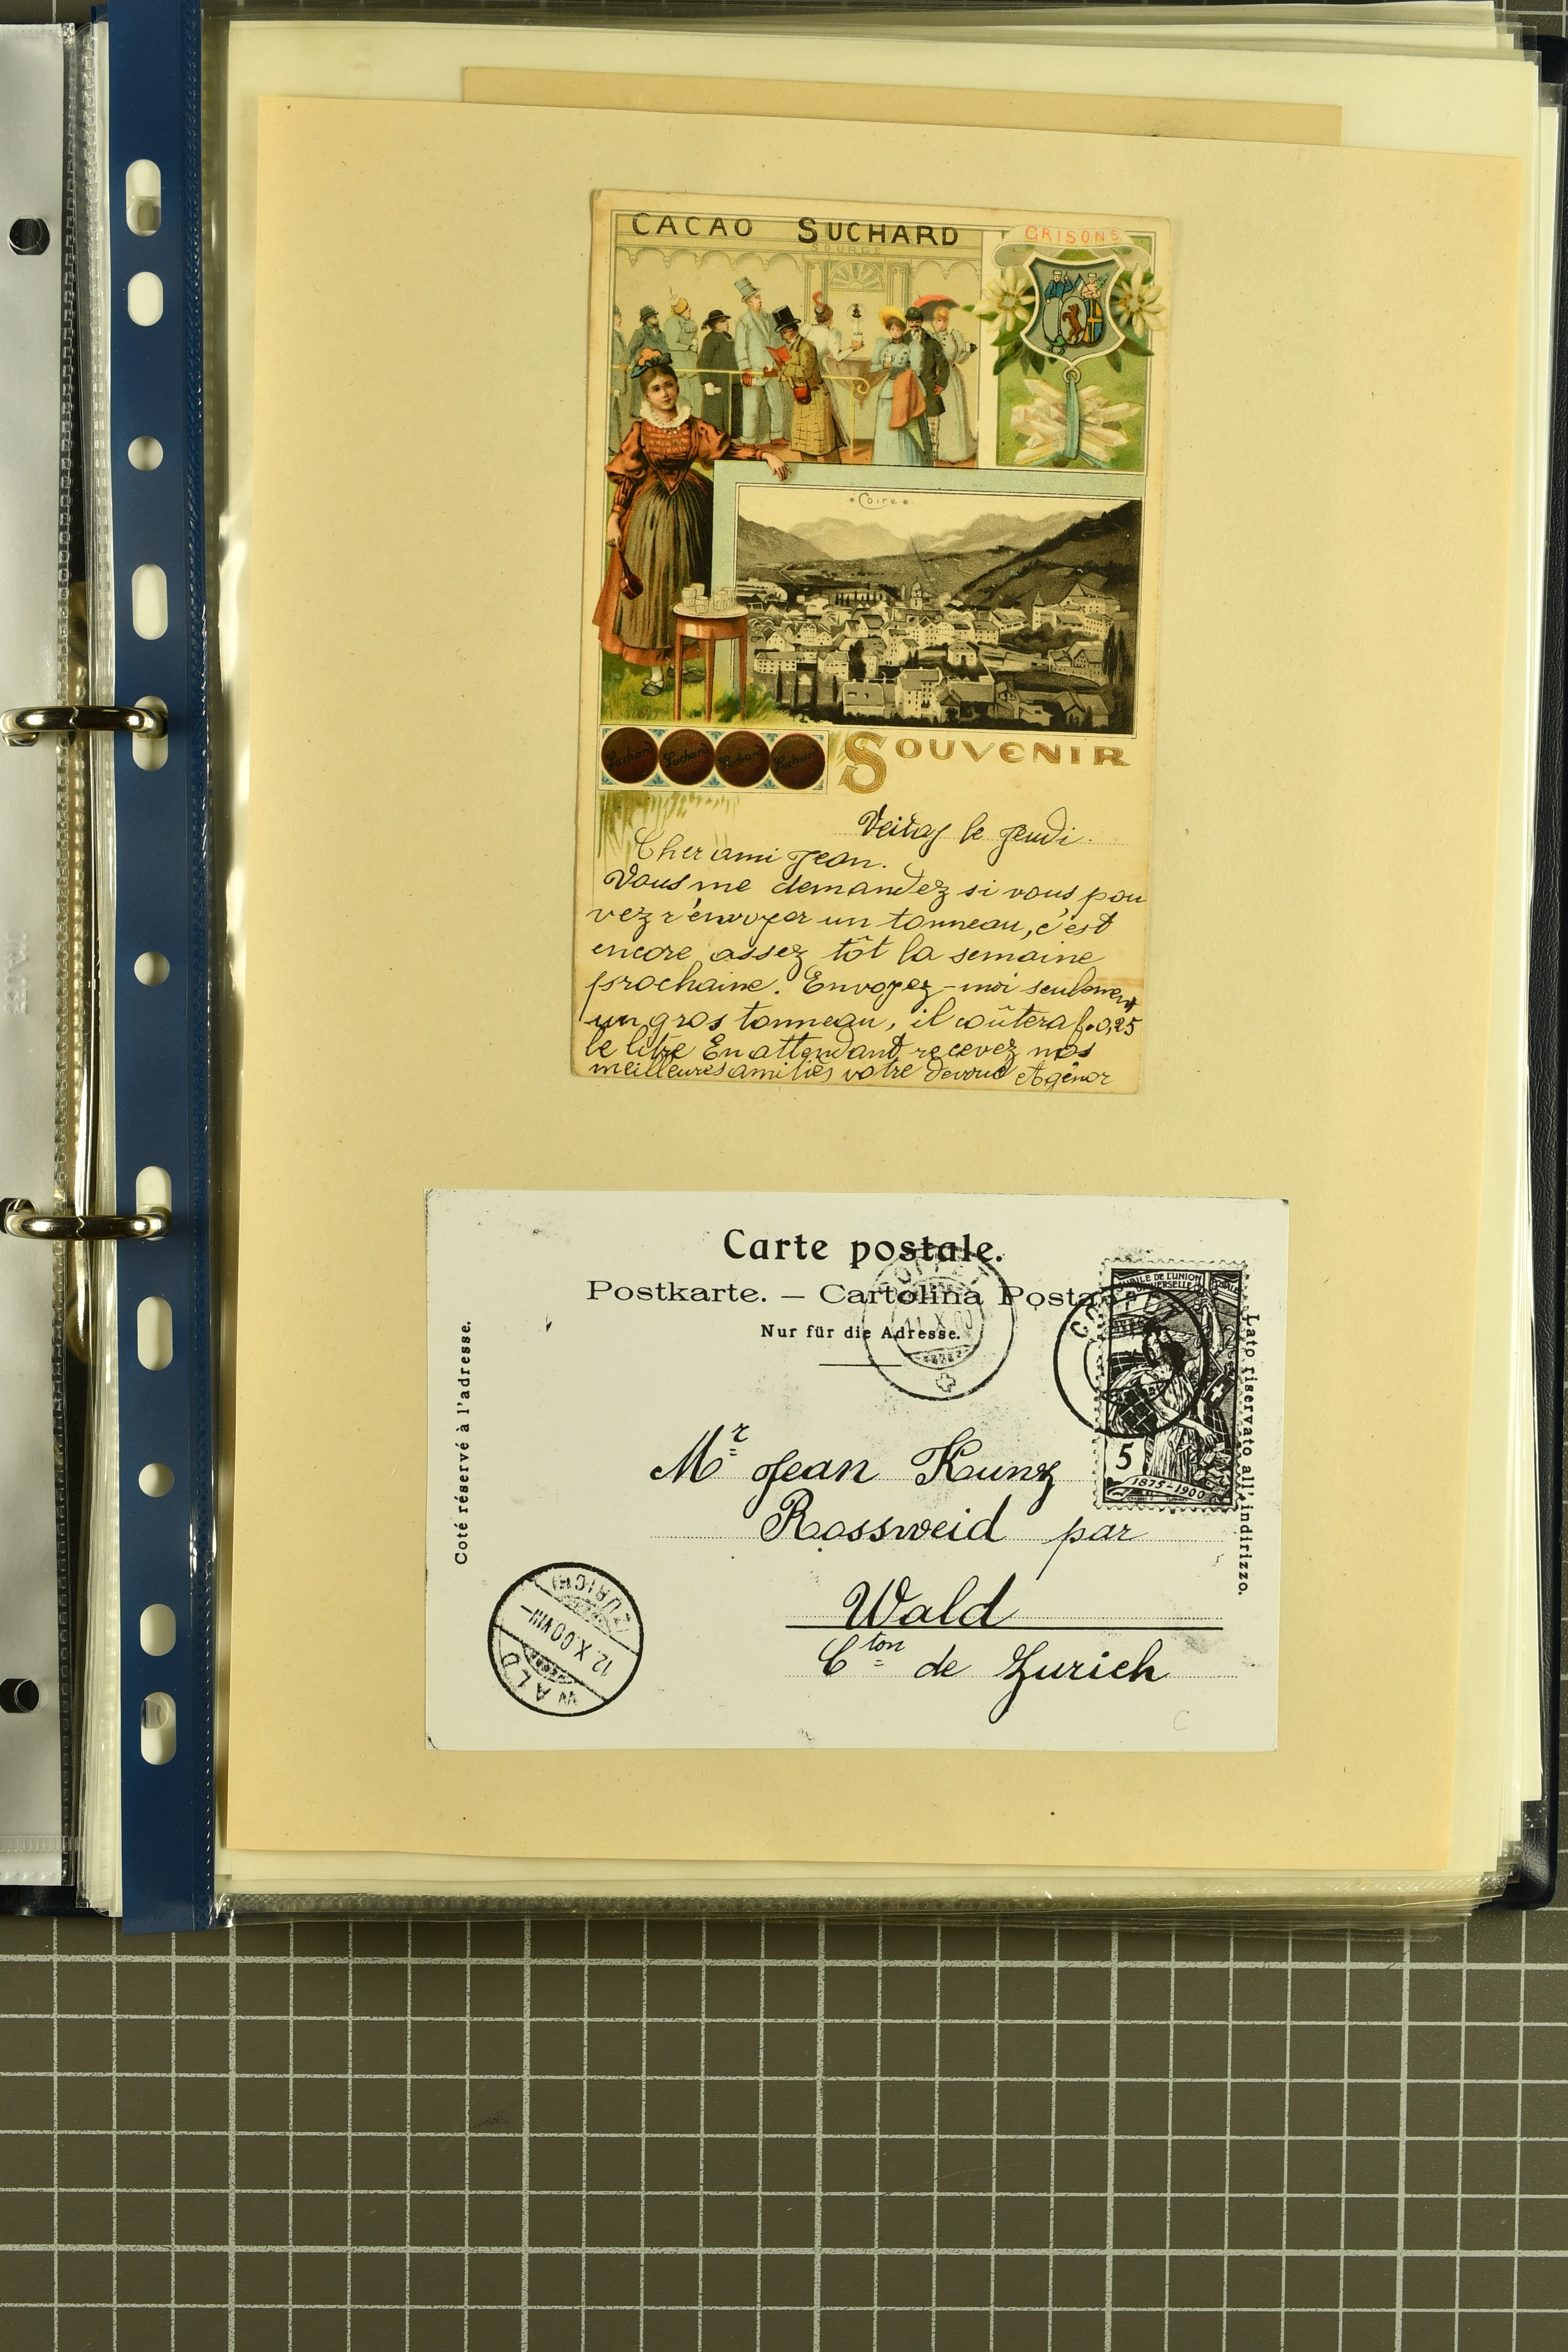 CACAO SUCHARD
SOURCE
GRISONS
Coire
Suchard Suchard Suchard Suchard
SOUVENIR
le Jeudi.
Cher ami Jean.
Vous me demandez si vous pou
vez r'envoyer un tonneau, c'est
encore assez tôt la semaine
prochaine. Envoyez-moi seulement
un gros tonneau, il coûtera f. 0,25
le litre En attendant recevez nos
meilleures amitiés votre dévoué Agénor
Carte postale.
Postkarte. — Cartolina Posta
Nur für die Adresse.
Coté réservé à l'adresse.
Lato riservato all' indirizzo.
COPPET
11.X.00
JUBILÉ DE L'UNION
5
1875-1900
Mr Jean Kunz
Rossweid par
Wald
Cton de Zurich
WALD
12.X.00.VIII-
(ZÜRICH)
C